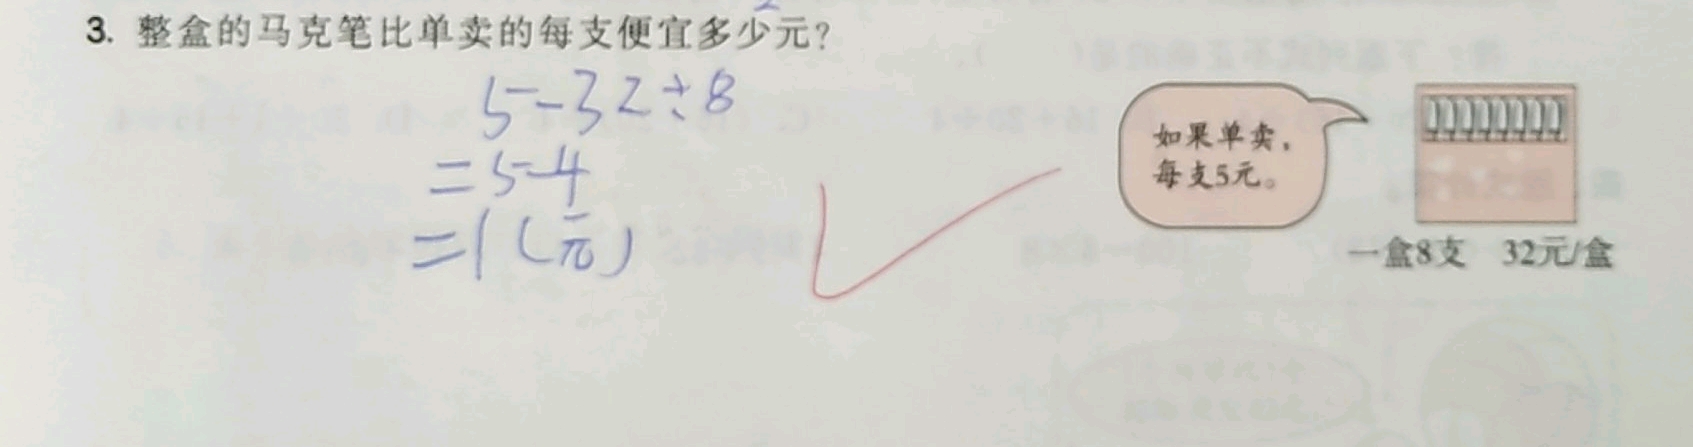 3. 整盒的马克笔比单卖的每支便宜多少元?
5-32÷8
=5-4
=1(元)
如果单卖,
每支5元。
一盒8支 32元/盒